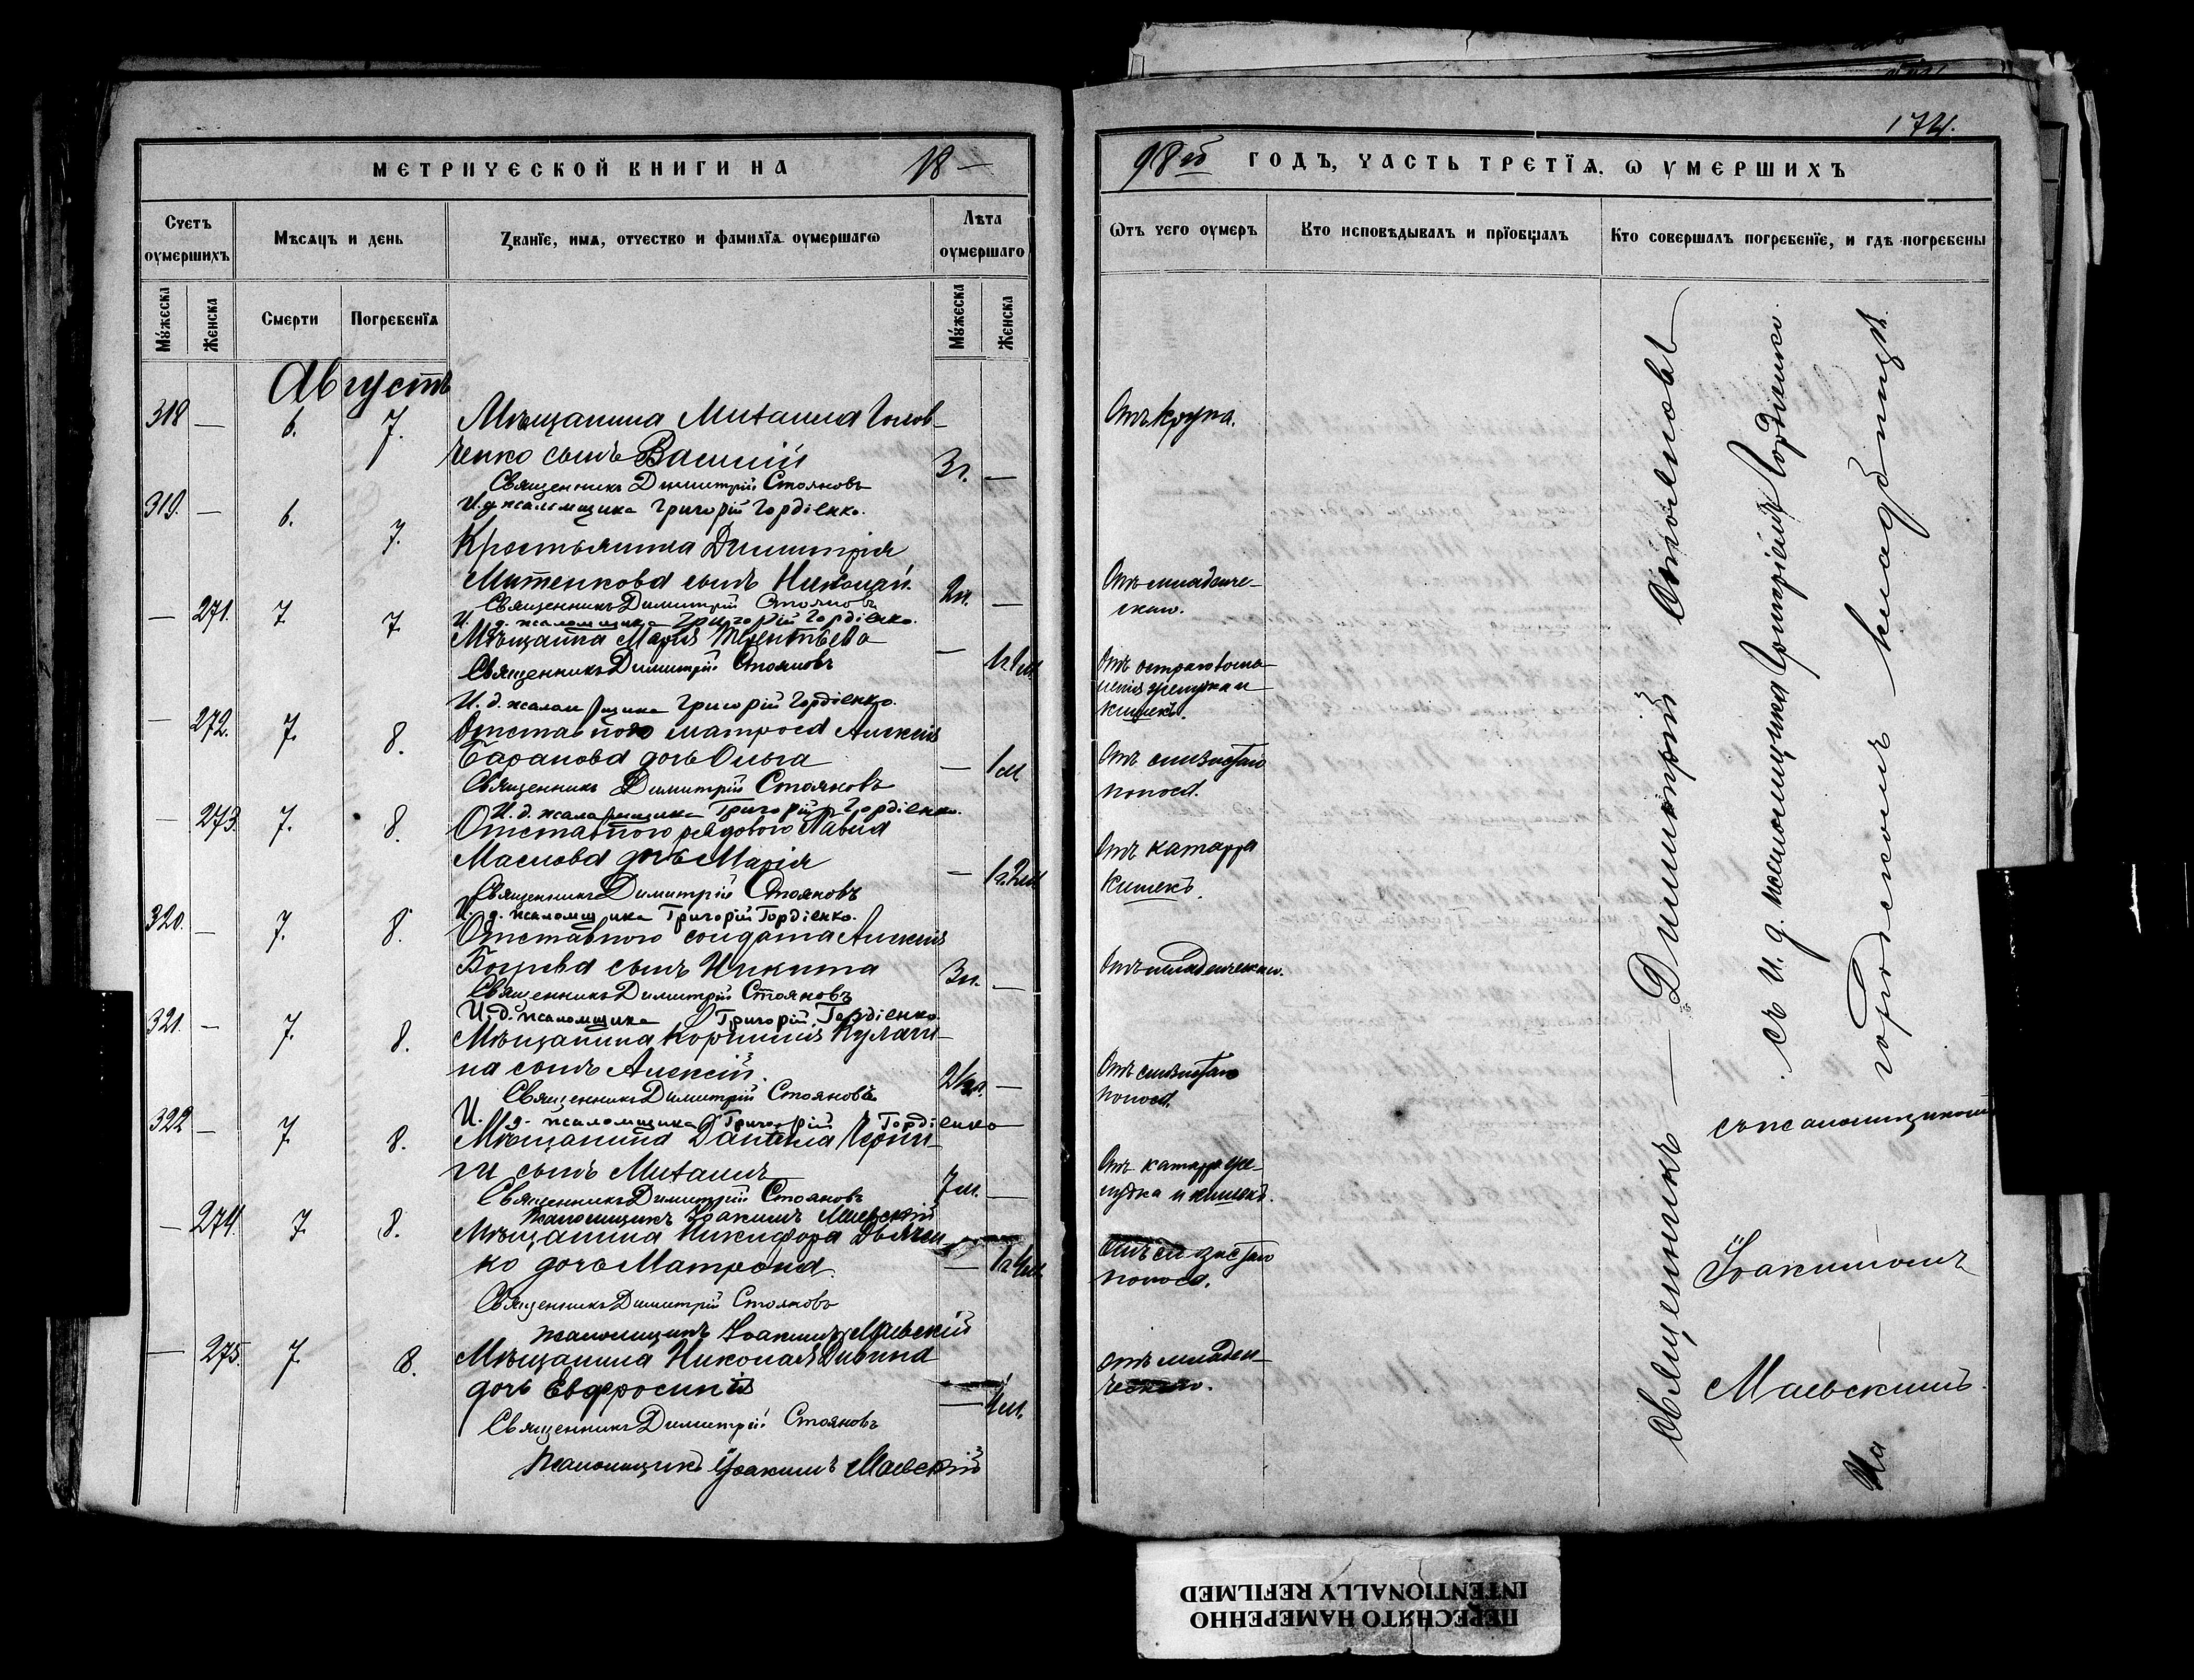 174.
МЕТРИЧЕСКОЙ КНИГИ НА 18—
98ой ГОДЪ, ЧАСТЬ ТРЕТІѦ, Ѡ УМЕРШИХЪ
Счетъ оумершихъ
Мѣсѧцъ и день
Званїе, имѧ, отчество и фамилїѧ оумершагѡ
Лѣта оумершаго
Ѿтъ чего оумеръ
Кто исповѣдывалъ и прїобщалъ
Кто совершалъ погребенїе, и гдѣ погребены
Мꙋжеска
Женска
Смерти
Погребенїѧ
Мꙋжеска
Женска
Августъ
318 — 6. 7. Мѣщанина Михаила Голов-
ченко сынъ Василій 3г. —
Отъ крупа.
Священникъ Димитрій Стояновъ
И. д. псаломщика Григорій Гордіенко.
319. — 6. 7. Крестьянина Димитрія
Митенкова сынъ Николай. 2м. —
Отъ младенче-
скаго.
Священникъ Димитрій Стояновъ
И. д. псаломщика Григорій Гордіенко.
— 271. 7 7 Мѣщанина Марія Терентьева — 1г.1м.
Отъ остраго воспа-
ленія желудка и
кишекъ.
Священникъ Димитрій Стояновъ
И. д. псаломщика Григорій Гордіенко.
— 272. 7. 8. Отставного матроса Алексія
Баранова дочь Ольга — 1м
Отъ слизистаго
поноса.
Священникъ Димитрій Стояновъ
И. д. псаломщика Григорій Гордіенко.
— 273. 7. 8. Отставного рядового Павла
Маслова дочь Марія — 1г.2м.
Отъ катарра
кишекъ.
Священникъ Димитрій Стояновъ
И. д. псаломщика Григорій Гордіенко.
320. — 7. 8. Отставного солдата Алексія
сынъ Никита 3м. —
Отъ младенческаго.
Священникъ Димитрій Стояновъ
И. д. псаломщика Григорій Гордіенко
321. — 7. 8. Мѣщанина Корнилія Кулачи-
на сынъ Алексій. —
Отъ слизистаго
поноса.
Священникъ Димитрій Стояновъ
И. д. псаломщика Григорій Гордіенко
322 — 7. 8. Мѣщанина Даніила Черни-
ги сынъ Михаилъ 7м. —
Отъ катарра же-
лудка и кишекъ.
Священникъ Димитрій Стояновъ
Псаломщикъ Іоакимъ Маевскій
— 274. 7. 8. Мѣщанина Никифора Дьячен-
ко дочь Матрона. —
Отъ слизистаго
поноса.
Священникъ Димитрій Стояновъ
Псаломщикъ Іоакимъ Маевскій
— 275. 7. 8. Мѣщанина Николая
дочь Евфросинія —
отъ младен-
ческаго.
Священникъ Димитрій Стояновъ
Псаломщикъ Іоакимъ Маевскій
Священникъ — Димитрій Стояновъ
съ И. д. псаломщика Григоріемъ Гордіенко.
съ псаломщикомъ
Іоакимомъ
Маевскимъ.
На
городскомъ кладбищѣ.
ПЕРЕСНЯТО НАМЕРЕННО
INTENTIONALLY REFILMED